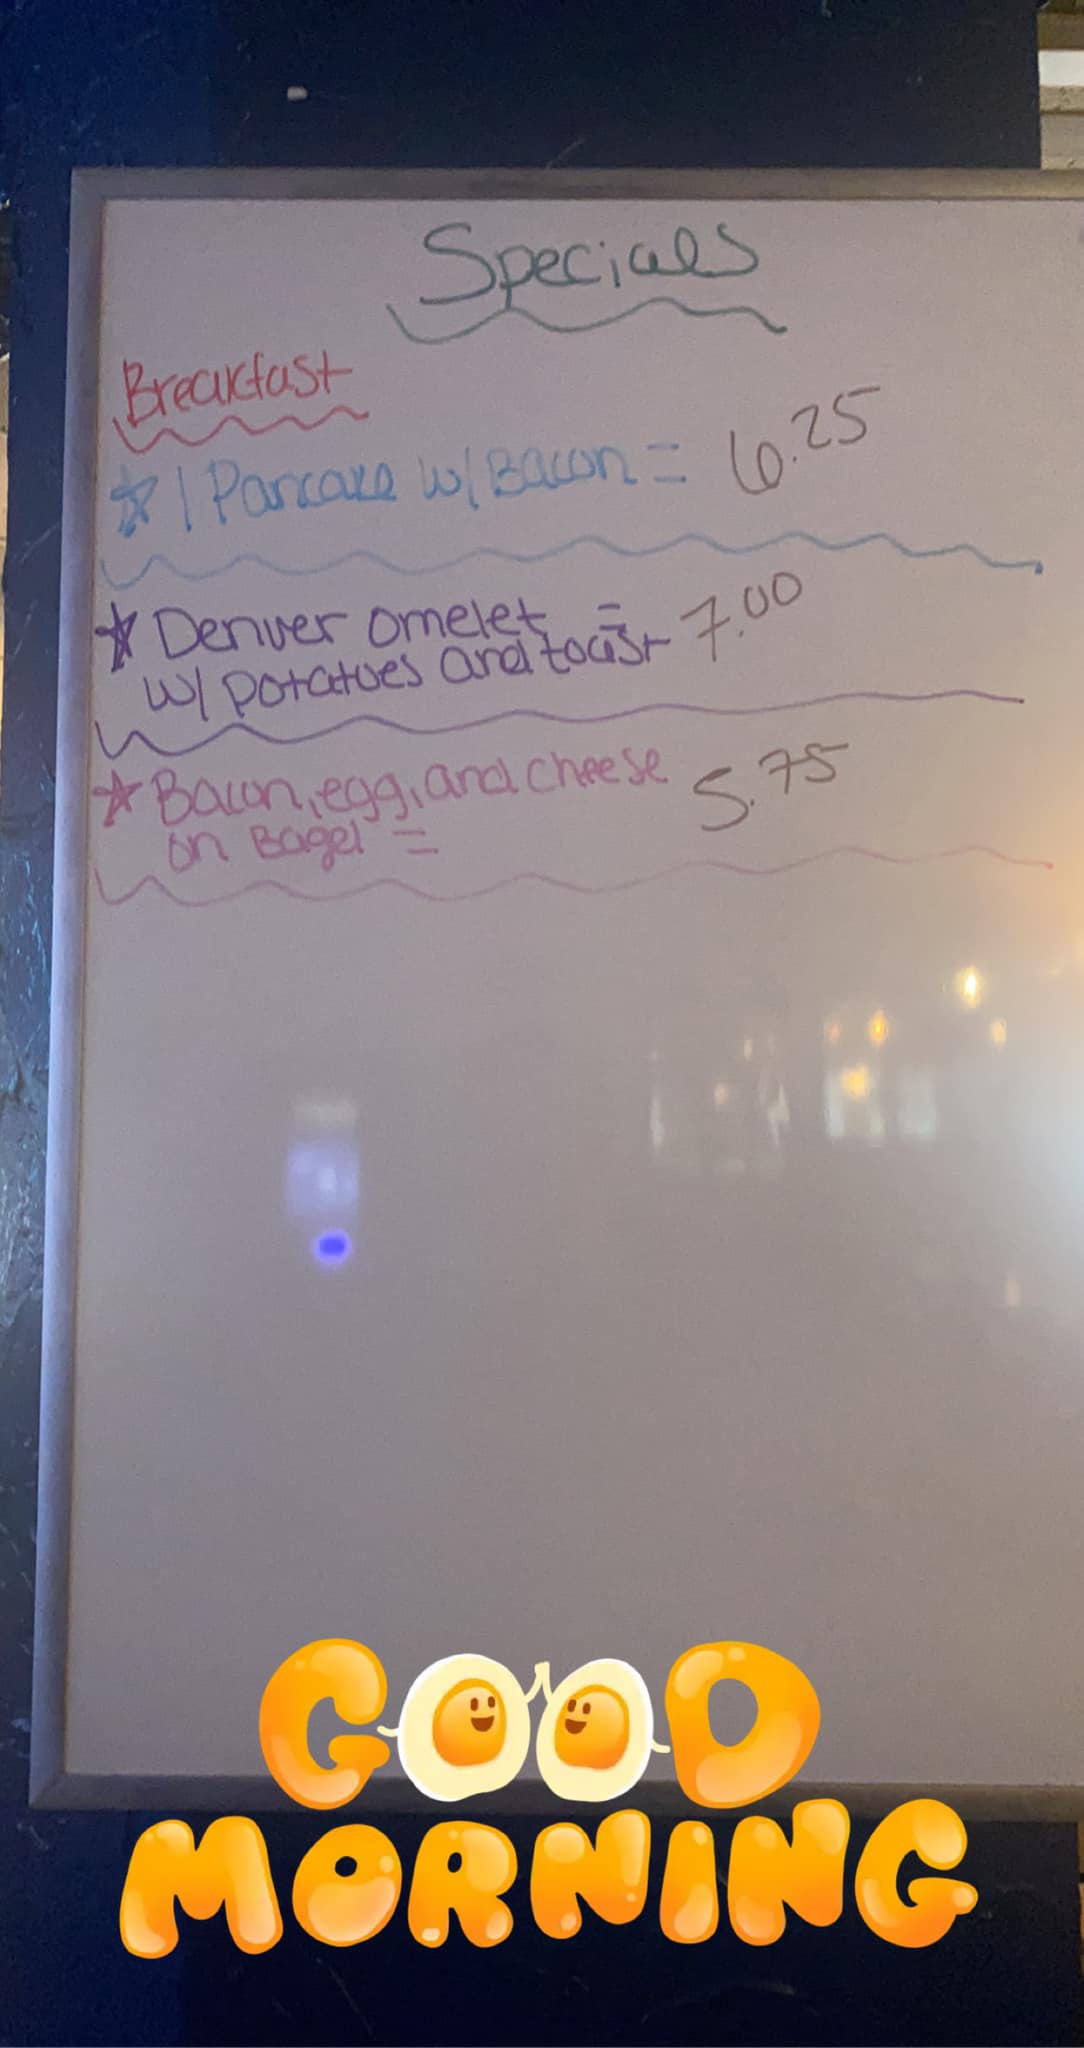 Specials
Breakfast
☆ 1 Pancake w/ Bacon = 6.25
☆ Denver omelet = 7.00
w/ potatoes and toast
☆ Bacon, egg, and cheese 5.75
on Bagel =
GOOD
MORNING